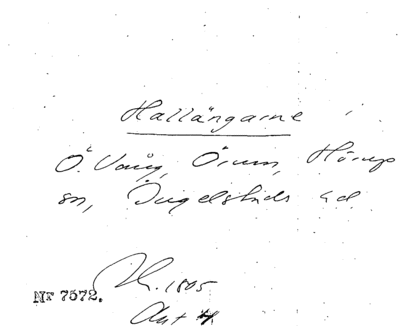 Hallängarne
Ö. Vång, Örum, Hörups
sn, Ingelstads hd
1805
Nr 7572.
Akt 4